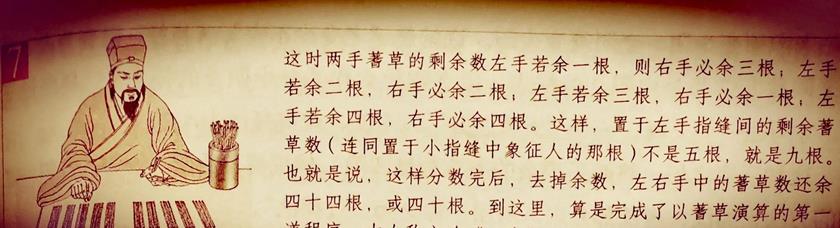 7
这时两手蓍草的剩余数左手若余一根，则右手必余三根；左手
若余二根，右手必余二根；左手若余三根，右手必余一根；左
手若余四根，右手必余四根。这样，置于左手指缝间的剩余蓍
草数（连同置于小指缝中象征人的那根）不是五根，就是九根、
也就是说，这样分数完后，去掉余数，左右手中的蓍草数还余
四十四根，或四十根。到这里，算是完成了以蓍草演算的第一